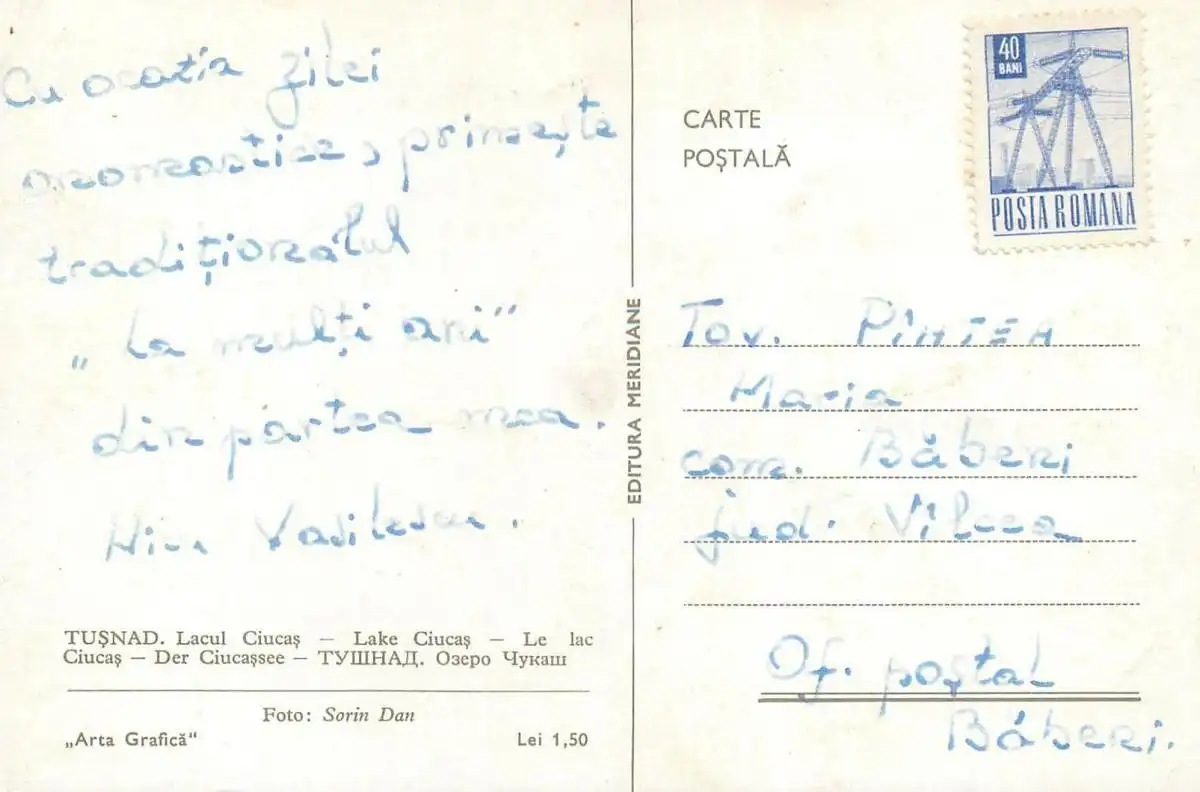 Cu ocatia zilei
onomastice, primește
tradiționalul
„La mulți ani"
din partea mea.
Vasilescu.
TUȘNAD. Lacul Ciucaș — Lake Ciucaș — Le lac
Ciucaș — Der Ciucașsee — ТУШНАД. Озеро Чукаш
Foto: Sorin Dan
„Arta Grafică" Lei 1,50
EDITURA MERIDIANE
CARTE
POȘTALĂ
40
BANI
POSTA ROMANA
Tov. PÎNTEA
Maria
com. Băberi
jud. Vîlcea
Of. poștal
Băberi.